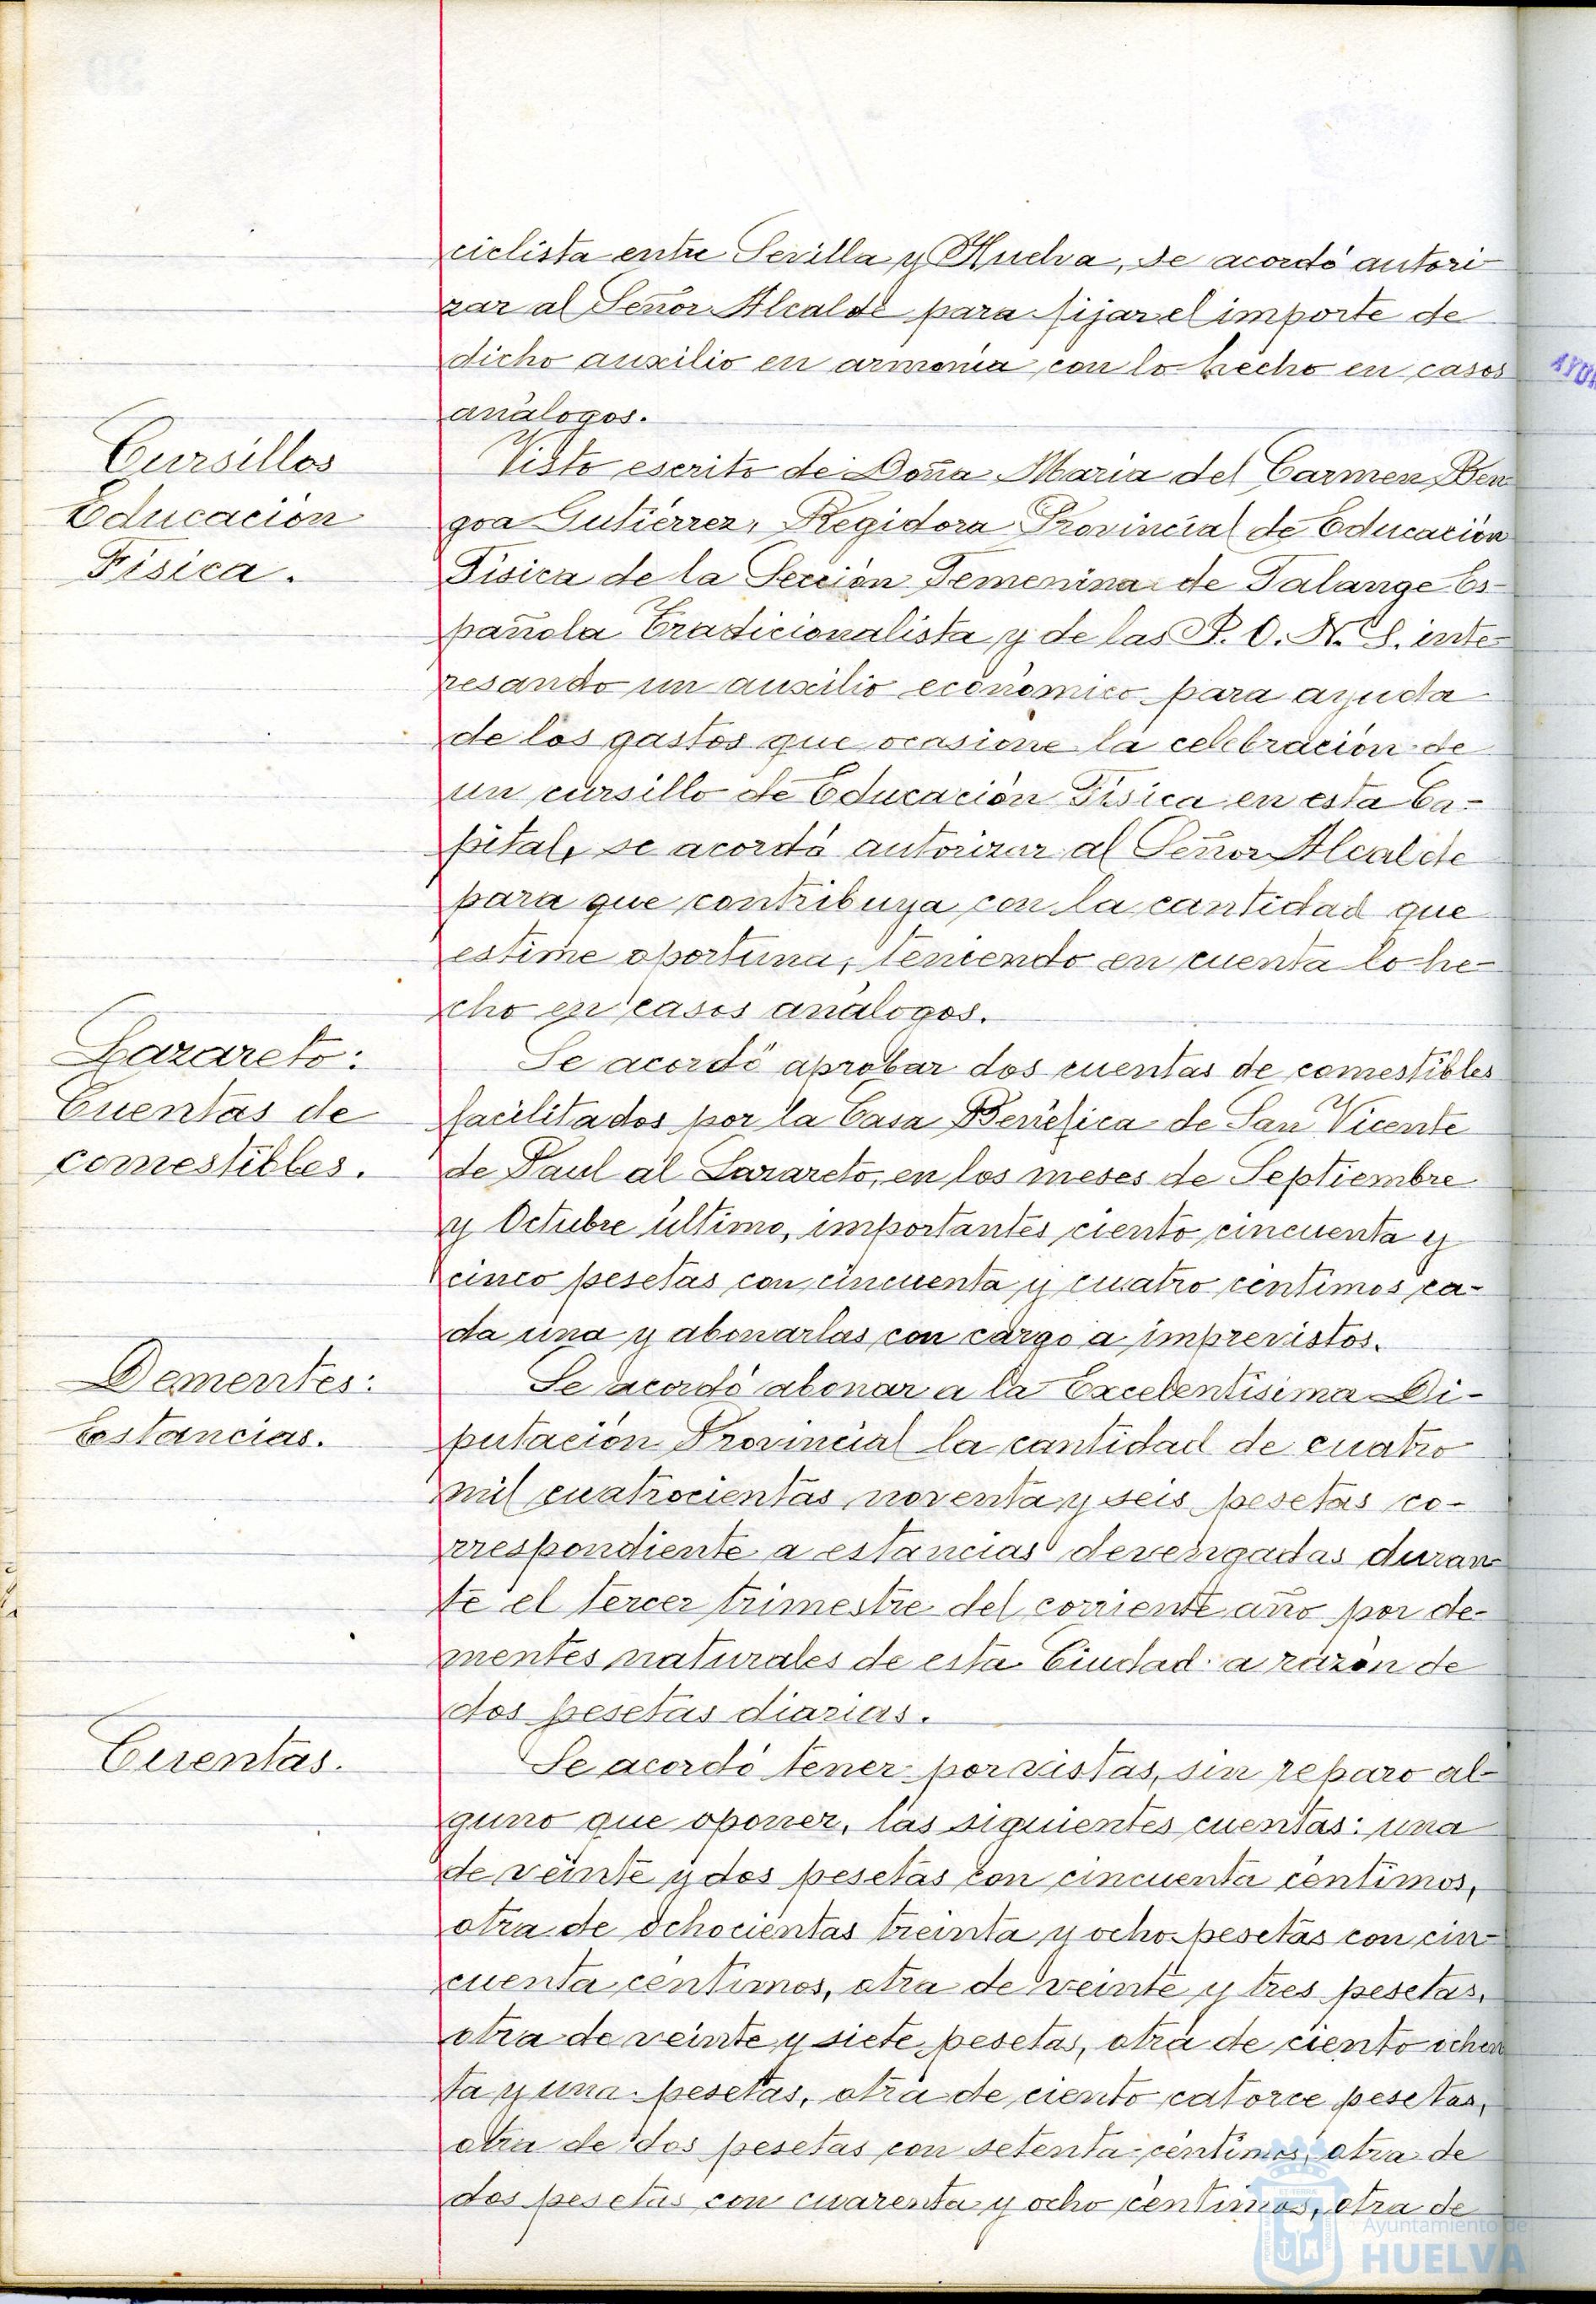 ciclista entre Sevilla y Huelva, se acordó autori-
zar al Señor Alcalde para fijar el importe de
dicho auxilio en armonía con lo hecho en casos
análogos.
Cursillos
Educación
Física.
Visto escrito de Doña María del Carmen Ben
goa Gutiérrez, Regidora Provincial de Educación
Física de la Sección Femenina de Falange Es-
pañola Tradicionalista y de las J. O. N. S. inte-
resando un auxilio económico para ayuda
de los gastos que ocasione la celebración de
un cursillo de Educación Física en esta Ca-
pital, se acordó autorizar al Señor Alcalde
para que contribuya con la cantidad que
estime oportuna, teniendo en cuenta lo he-
cho en casos análogos.
Lazareto:
Cuentas de
comestibles.
Se acordó aprobar dos cuentas de comestibles
facilitados por la Casa Benéfica de San Vicente
de Paul al Lazareto, en los meses de Septiembre
y Octubre último, importantes ciento cincuenta y
cinco pesetas con cincuenta y cuatro céntimos ca-
da una y abonarlas con cargo a imprevistos.
Dementes:
Estancias.
Se acordó abonar a la Excelentísima Di-
putación Provincial la cantidad de cuatro
mil cuatrocientas noventa y seis pesetas co-
rrespondiente a estancias devengadas duran
te el tercer trimestre del corriente año por de-
mentes naturales de esta Ciudad a razón de
dos pesetas diarias.
Cuentas.
Se acordó tener por vistas, sin reparo al-
guno que oponer, las siguientes cuentas: una
de veinte y dos pesetas con cincuenta céntimos,
otra de ochocientas treinta y ocho pesetas con cin-
cuenta céntimos, otra de veinte y tres pesetas,
otra de veinte y siete pesetas, otra de ciento ochen
ta y una pesetas, otra de ciento catorce pesetas,
otra de dos pesetas con setenta céntimos, otra de
dos pesetas con cuarenta y ocho céntimos, otra de
Ayuntamiento de
HUELVA